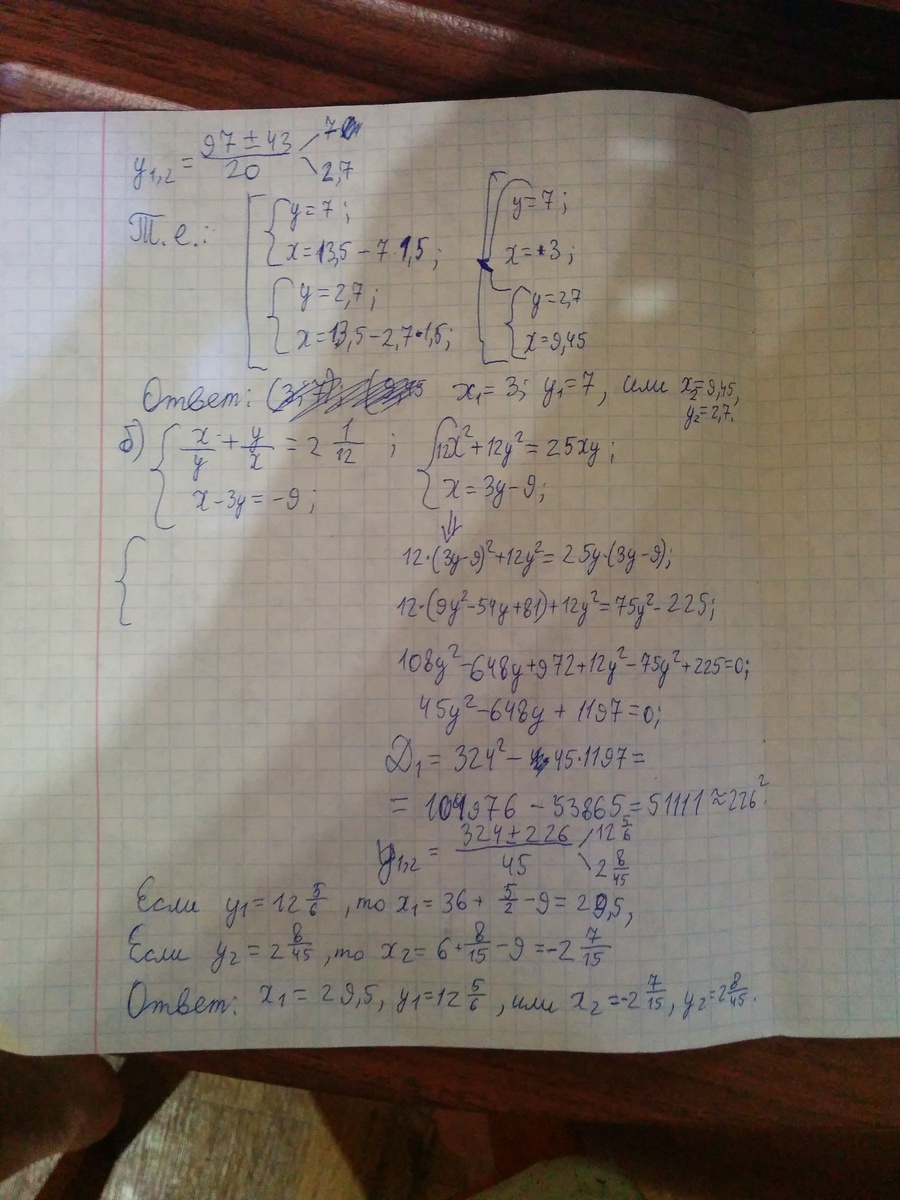 y₁,₂ = (97 ± 43)/20 7 2,7
Т.е.: [ { y = 7; x = 13,5 − 7·1,5; { y = 2,7; x = 13,5 − 2,7·1,5; [ { y = 7; x = 3; { y = 2,7 x = 9,45
Ответ: x₁ = 3; y₁ = 7, или x₂ = 9,45, y₂ = 2,7.
б) { x/y + y/x = 2 1/12 ; { 12x² + 12y² = 25xy;
x − 3y = −9; x = 3y − 9;
{ ⇓
12·(3y−9)² + 12y² = 25y·(3y−9);
12·(9y² − 54y + 81) + 12y² = 75y² − 225;
108y² − 648y + 972 + 12y² − 75y² + 225 = 0;
45y² − 648y + 1197 = 0;
D₁ = 324² − 45·1197 =
= 104976 − 53865 = 51111 ≈ 226²
y₁,₂ = (324 ± 226)/45 12 5/6 2 8/45
Если y₁ = 12 5/6, то x₁ = 36 + 5/2 − 9 = 29,5,
Если y₂ = 2 8/45, то x₂ = 6 + 8/15 − 9 = −2 7/15
Ответ: x₁ = 29,5, y₁ = 12 5/6, или x₂ = −2 7/15, y₂ = 2 8/45.